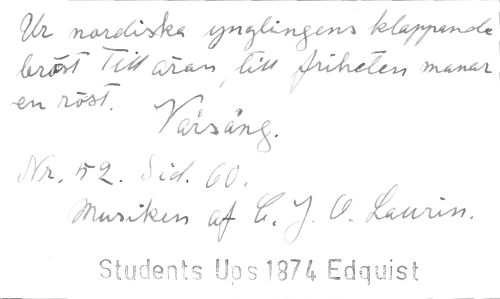 Ur nordiska ynglingens klappande
bröst Till äran, till friheten manar
en röst. Vårsång.
Nr. 52. Sid. 60.
Musiken af C. J. O. Laurin.
Students Ups 1874 Edquist